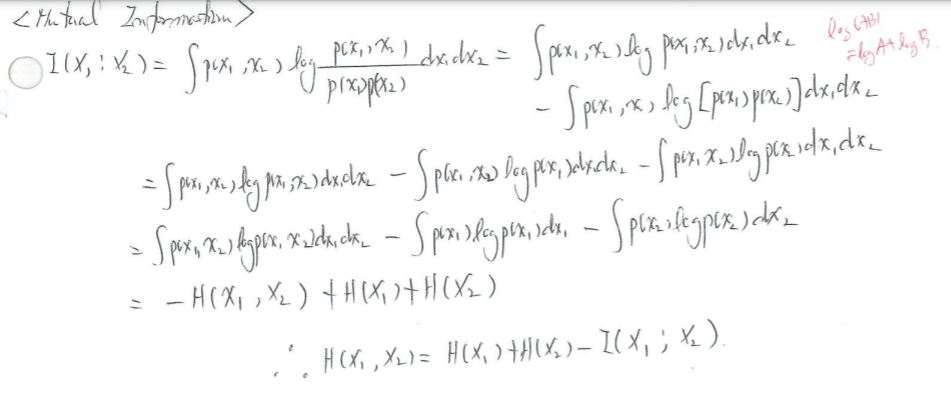 <Mutual Information>
I(X₁; X₂) = ∫p(x₁, x₂) log p(x₁, x₂)/p(x₁)p(x₂) dx₁dx₂ = ∫p(x₁, x₂) log p(x₁, x₂)dx₁dx₂
log(AB)
= log A + log B.
- ∫p(x₁, x₂) log [p(x₁)p(x₂)]dx₁dx₂
= ∫p(x₁, x₂) log p(x₁, x₂)dx₁dx₂ - ∫p(x₁, x₂) log p(x₁)dx₁dx₂ - ∫p(x₁, x₂) log p(x₂)dx₁dx₂
= ∫p(x₁, x₂) log p(x₁, x₂)dx₁dx₂ - ∫p(x₁) log p(x₁)dx₁ - ∫p(x₂) log p(x₂)dx₂
= -H(X₁, X₂) + H(X₁) + H(X₂)
∴ H(X₁, X₂) = H(X₁) + H(X₂) - I(X₁; X₂).